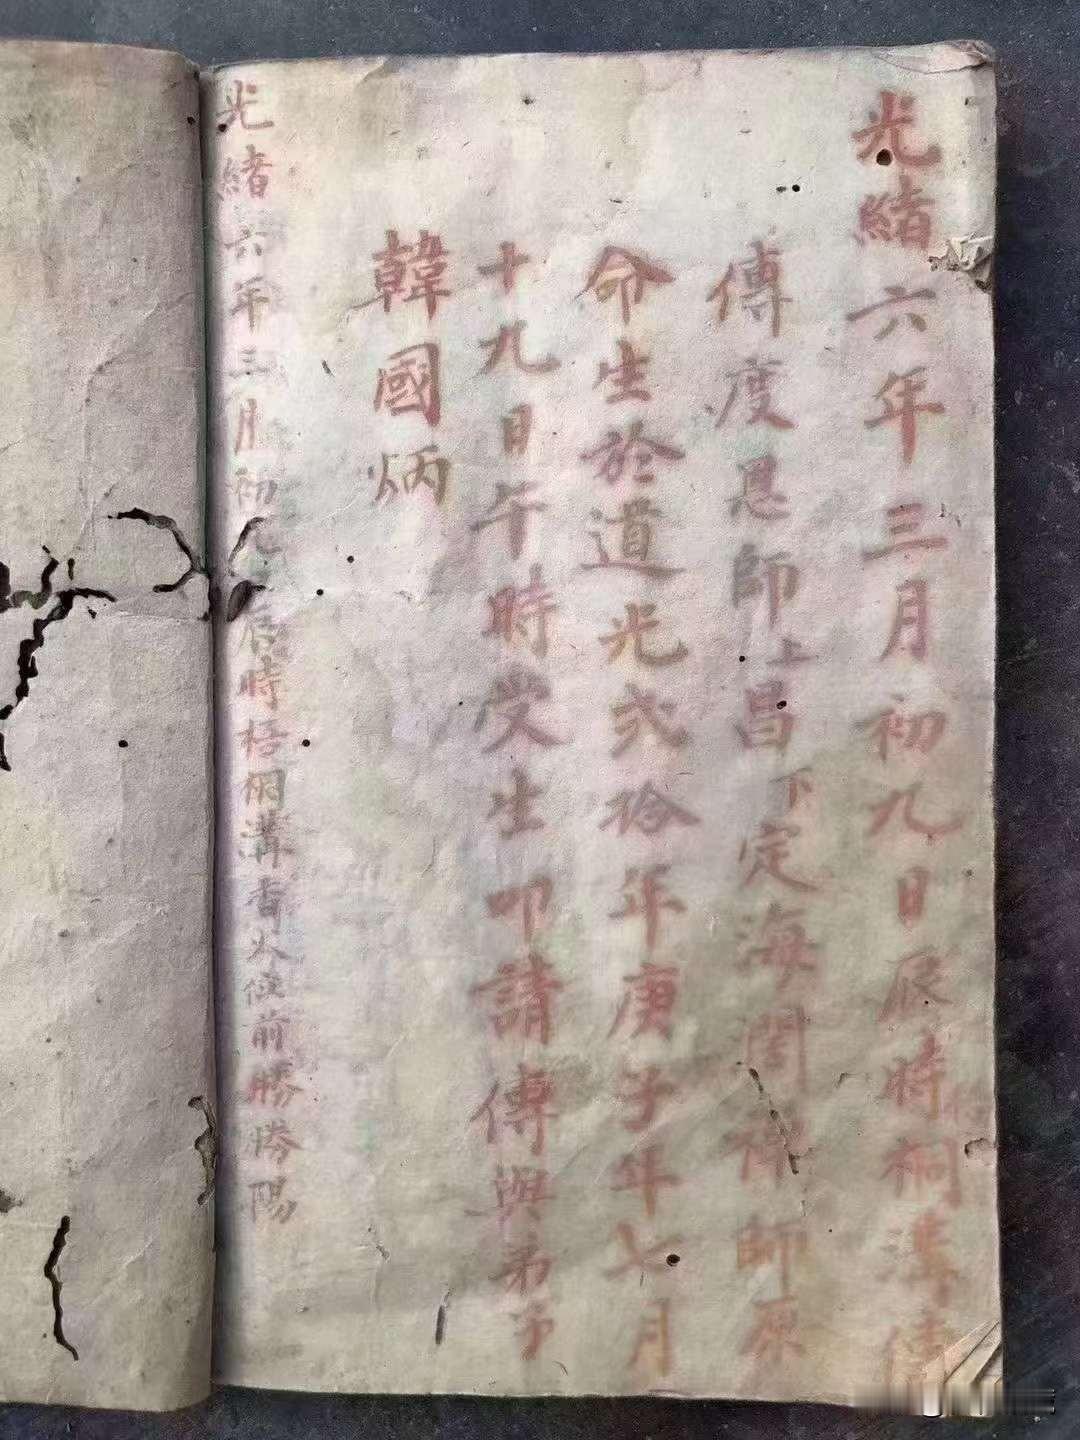 光緒六年三月初九日辰時桐溝傳
傳度恩師上昌下定海閏禪師原
命生於道光弍拾年庚子年七月
十九日午時受生叩請傳與弟子
韓國炳
光緒六年三月初九辰時梧桐溝香火位前勝勝陽